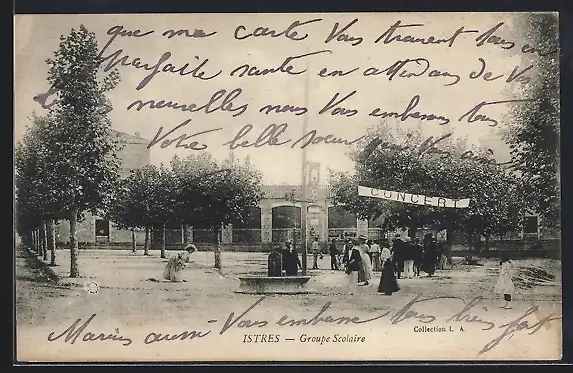 que ma carte Vous trouvent tous en
parfaite santé en attendans de Vos
nouvelles nous Vous embrassons tous
Votre belle sœur
CONCERT
Marius aussi Vous embrasse tous bien fort
ISTRES — Groupe Scolaire
Collection L. A.